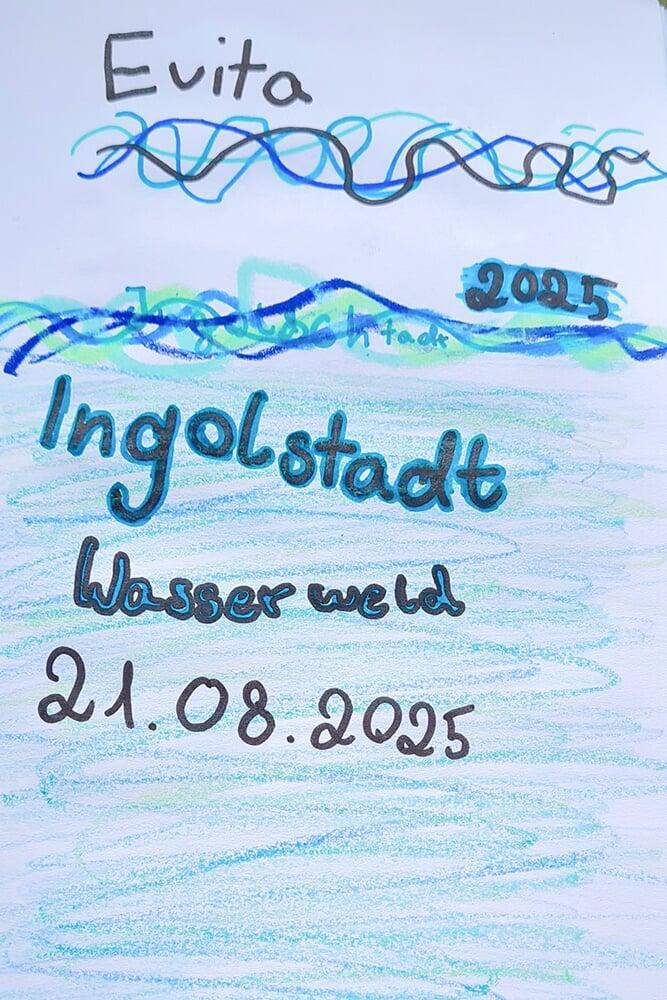 Evita
2025
Ingolschtadt
Ingolstadt
Wasser weld
21.08.2025